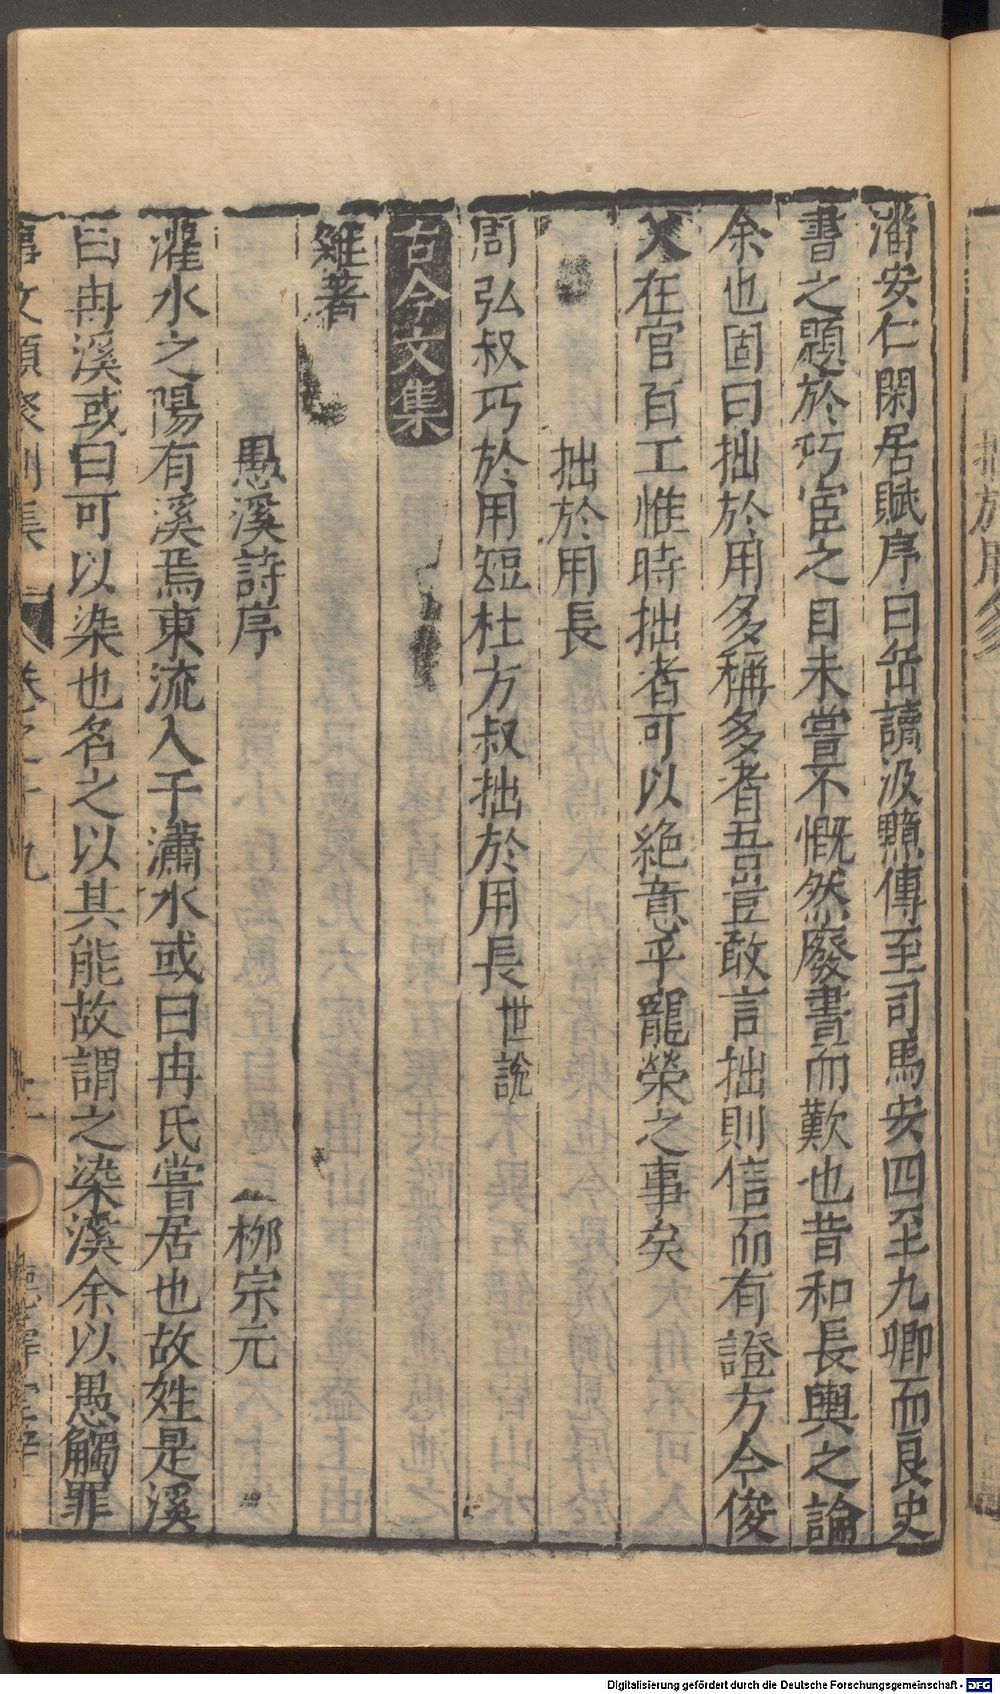 潘安仁閑居賦序曰岳讀汲黯傳至司馬安四至九卿而良史
書之題於巧宦之目未嘗不慨然廢書而歎也昔和長輿之論
余也固曰拙於用多稱多者吾豈敢言拙則信而有證方今俊
乂在官百工惟時拙者可以絶意乎寵榮之事矣
拙於用長
周弘叔巧於用短杜方叔拙於用長世說
古今文集
雜著
愚溪詩序 柳宗元
灌水之陽有溪焉東流入于瀟水或曰冉氏嘗居也故姓是溪
曰冉溪或曰可以染也名之以其能故謂之染溪余以愚觸罪
事文類聚別集 卷之十九
Digitalisierung gefördert durch die Deutsche Forschungsgemeinschaft - DFG